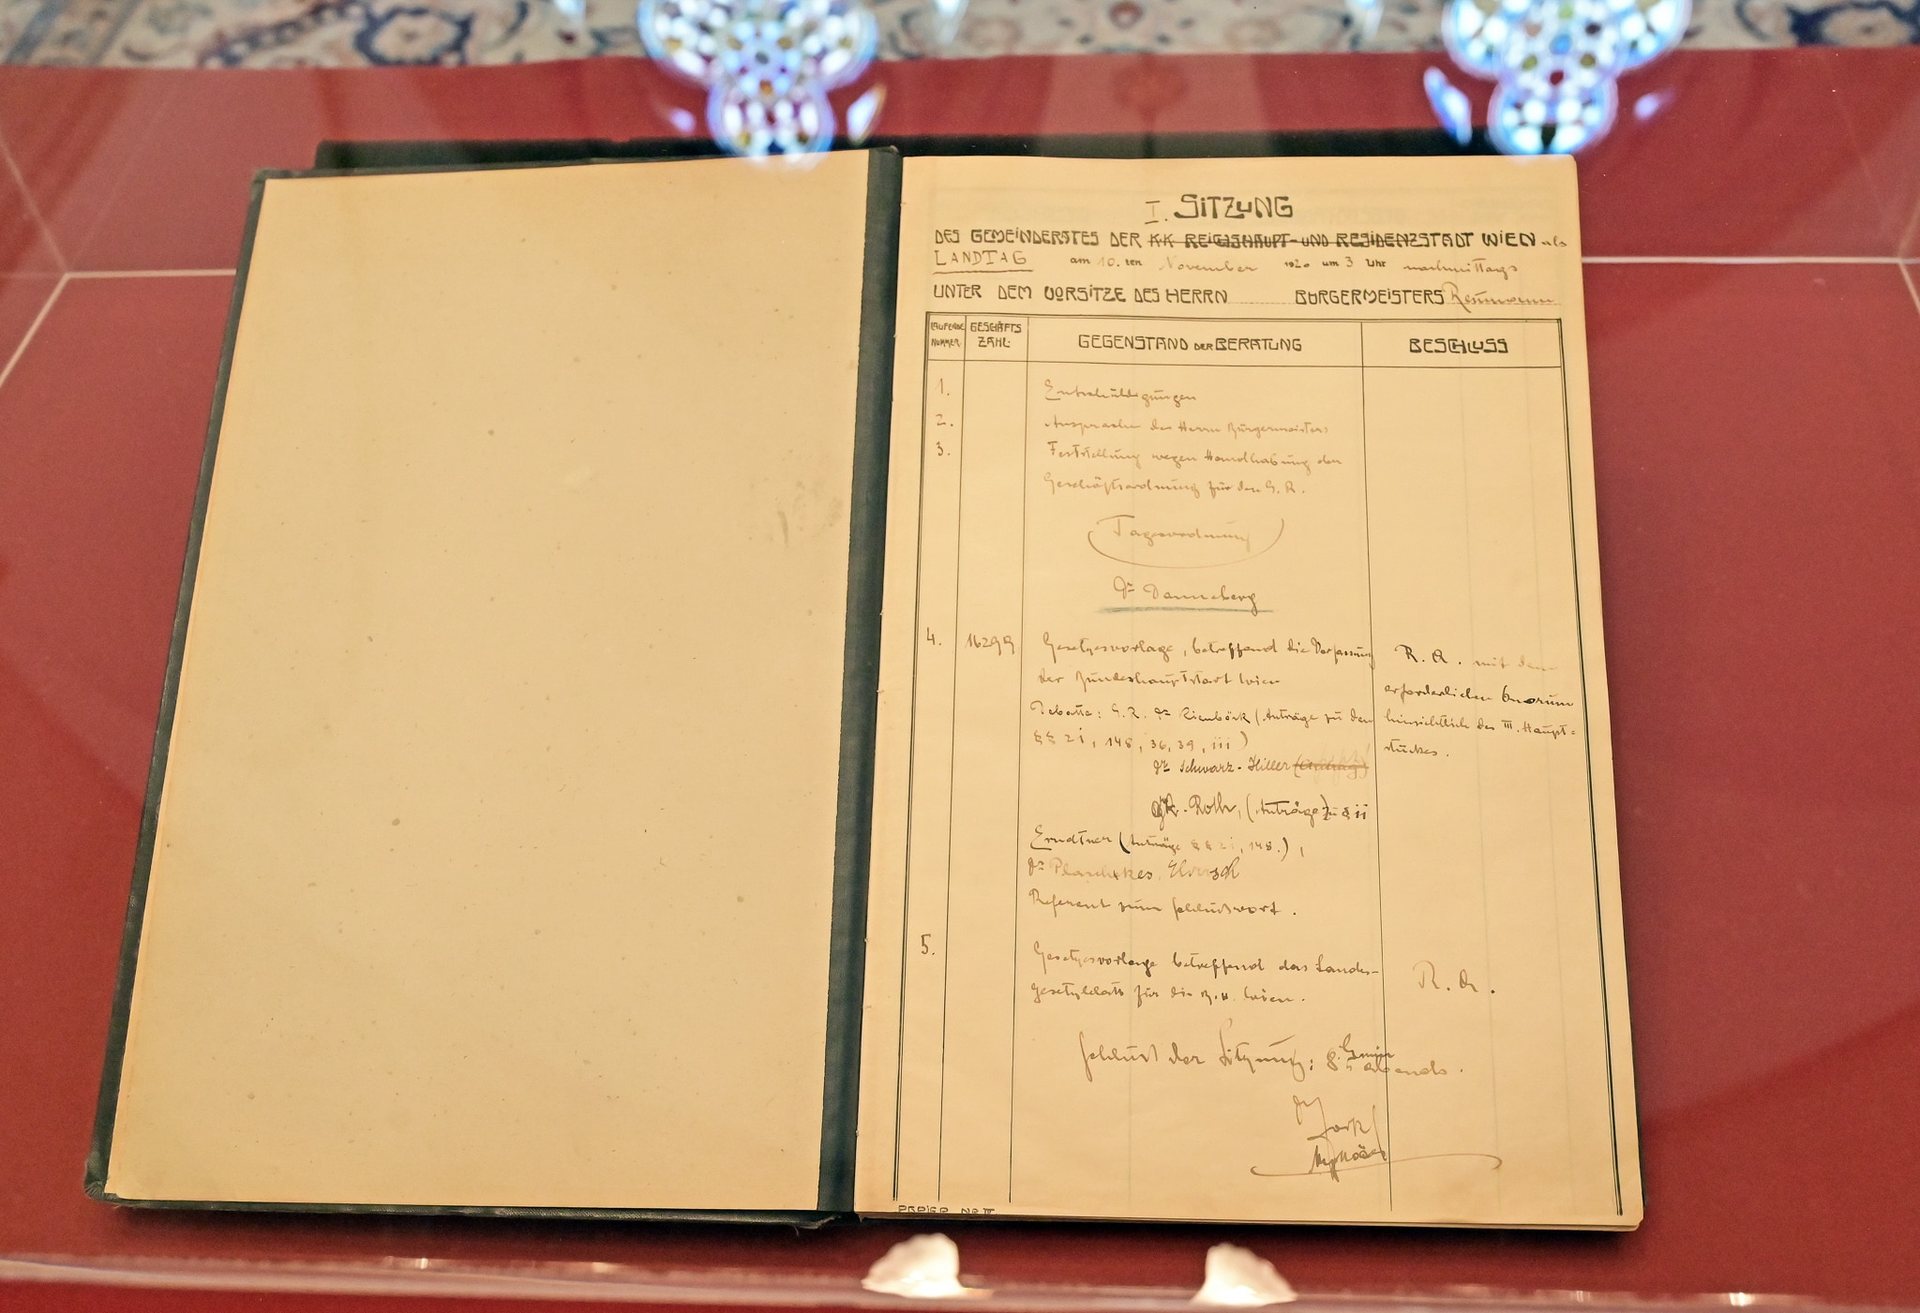 I. SITZUNG
DES GEMEINDERATES DER K.K. REICHSHAUPT- UND RESIDENZSTADT WIEN als
LANDTAG am 10. ten November 1920 um 3 Uhr nachmittags
UNTER DEM VORSITZE DES HERRN BÜRGERMEISTERS Reumann
LAUFENDE NUMMER GESCHÄFTS ZAHL: GEGENSTAND DER BERATUNG BESCHLUSS
1. Entschuldigungen
2. Ansprache des Herrn Bürgermeisters
3. Feststellung wegen Handhabung der
Geschäftsordnung für den G. R.
Tagesordnung
Dr Danneberg
4. 16299 Gesetzesvorlage, betreffend die Verfassung
der Bundeshauptstadt Wien
Debatte: G. R. Dr Rienböck (Anträge zu den
§§ 21, 148, 36, 39, 111)
Dr Schwarz-Hiller (Antrag)
Roth, (Anträge) zu § 11
Erndtner (Anträge §§ 21, 148.),
Dr Plaschkes,
Referent zum Schlußwort.
R. A. mit dem
erforderlichen Quorum
hinsichtlich des III. Haupt-
stückes.
5. Gesetzesvorlage betreffend das Landes-
gesetzblatt für die B. H. Wien. R. A.
Schluß der Sitzung: 8 abends.